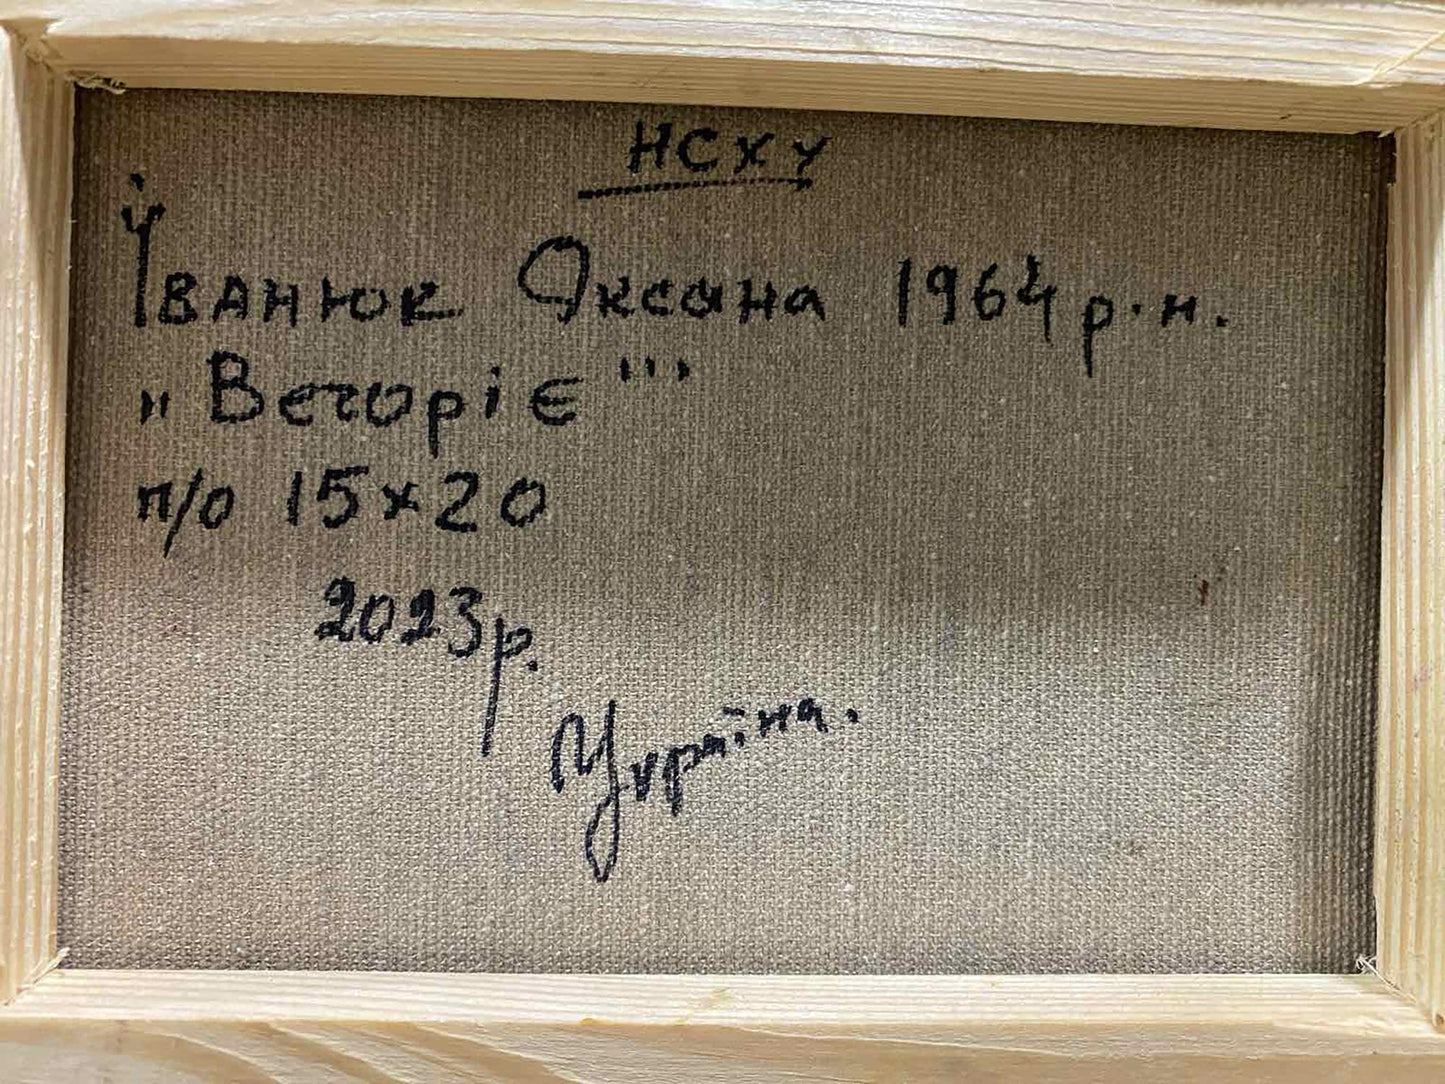 НСХУ
Іванюк Оксана 1964 р.н.
„Вечоріє"'
п/о 15х20
2023р.
Україна.